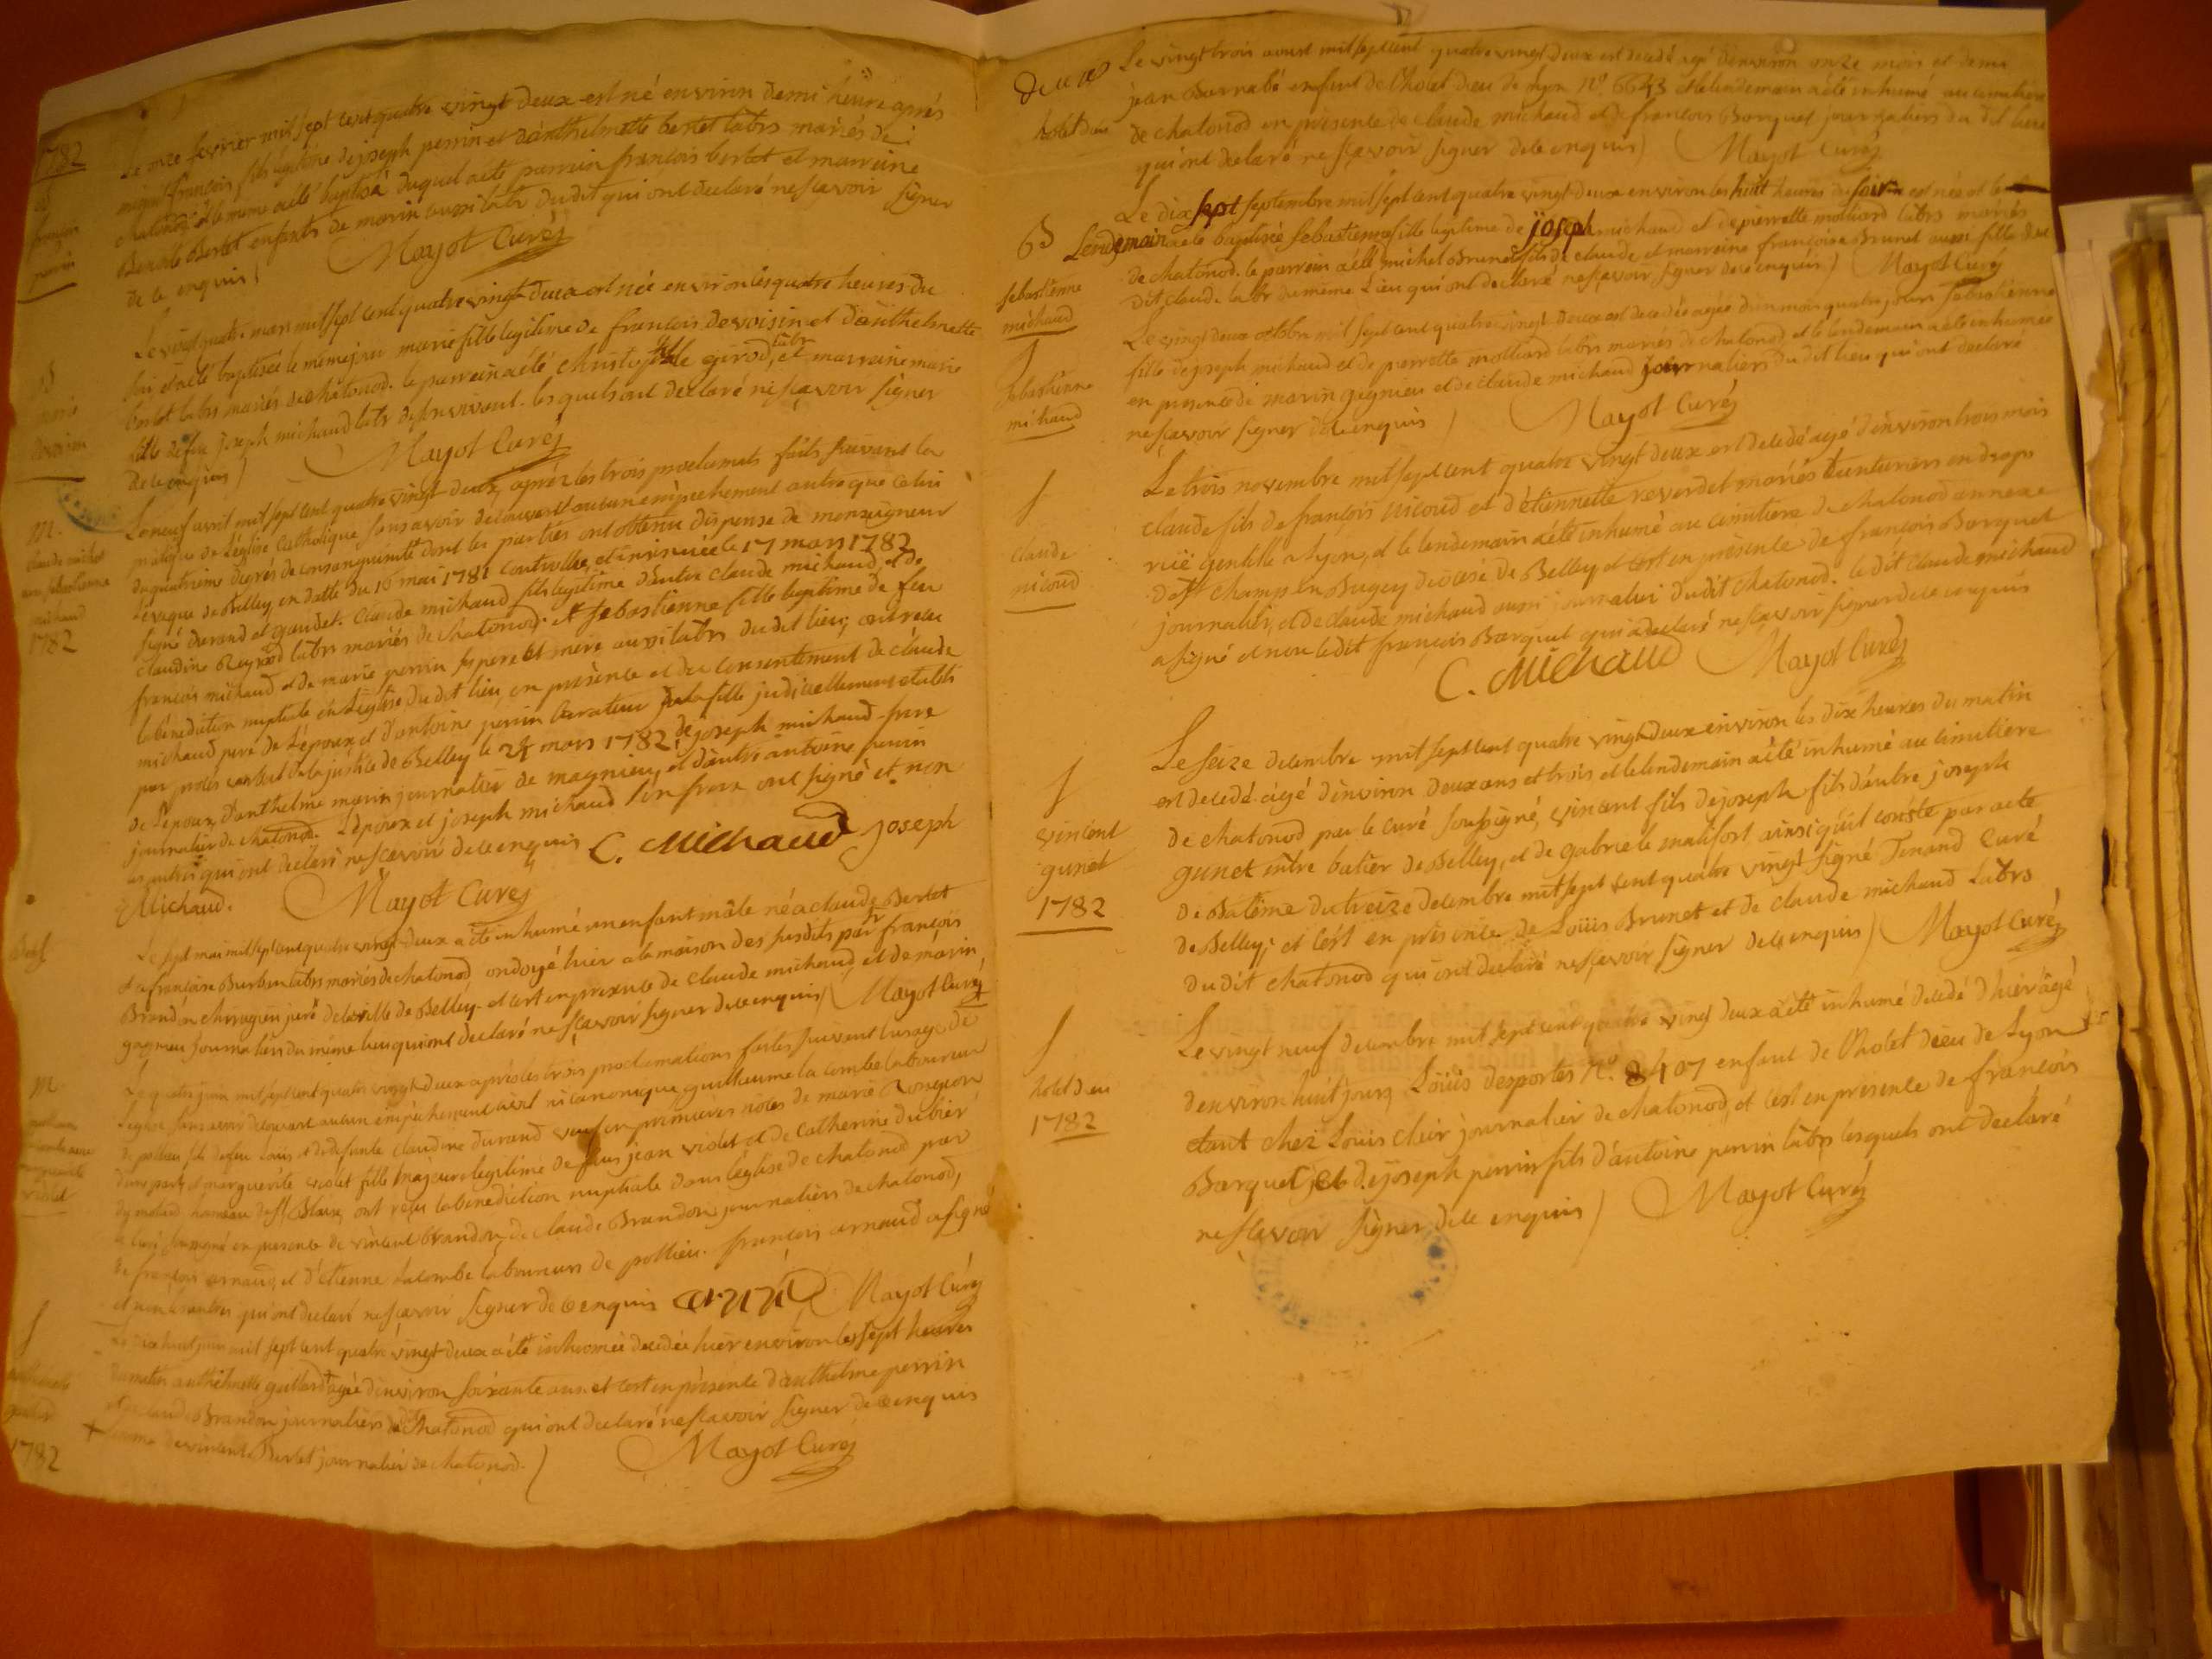 1782
Le onze fevrier mil sept cent quatre vingt deux est né environ demi heure aprés
minuit françois fils legitime de joseph perrin et d'anthelmette bertet labrs mariés de
chatonod et le meme a eté baptisé duquel a eté parrain françois bertet et marreine
Benoite Bertet enfants de marin aussi labr dudit qui ont declaré ne sçavoir signer
de ce enquis
Mayot Curé
françois
perrin
Le vingt quatre mars mil sept cent quatre vingt deux est née environ les quatre heures du
soir et a eté baptisée le meme jour marie fille legitime de françois devoisin et d'anthelmette
bertet labrs mariés de chatonod. le parrein a eté christophle girod labr et marraine marie
fille de feu joseph michaud labr de son vivant. lesquels ont declaré ne sçavoir signer
de ce enquis
Mayot Curé
marie
devoisin
m.
claude michaud
sebastienne
michaud
1782
Le neuf avril mil sept cent quatre vingt deux, aprés les trois proclamats faits suivant la
pratique de L'église Catholique sans avoir decouvert aucun empechement autre que celui
du quatrieme degrés de consanguinité dont les parties ont obtenu dispense de monseigneur
L'évêque de Belley en datte du 16 mai 1781 controllée, et insinuée le 17 mars 1782
signé durand et gaudet. Claude michaud fils legitime d'autre claude michaud, et de
claudine Reynod labrs mariés de chatonod. et sebastienne fille legitime de feu
françois michaud et de marie perrin ses pere et mere aussi labrs du dit lieu, ont reçu
la bénédiction nuptiale en L'église du dit lieu, en presence et du consentement de claude
michaud pere de L'époux, et d'antoine perrin curateur de la fille judiciellement etabli
par procès verbal de la justice de Belley le 24 mars 1782, de joseph michaud frere
de L'époux, d'anthelme marin journalier de magnieu, et d'autre antoine perrin
journalier de chatonod. L'époux et joseph michaud son frere ont signé et non
les autres qui ont declaré ne sçavoir de ce enquis C. Michaud joseph
Michaud. Mayot Curé
Le sept mai mil sept cent quatre vingt deux a eté inhumé un enfant mâle né a claude Bertet
et a françoise Burbon labrs mariés de chatonod, ondoyé hier a la maison des susdits par sr françois
Brandon chirurgien juré de la ville de Belley. et c'est en presence de claude michaud, et de marin
gagnieu journaliers du même lieu qui ont declaré ne sçavoir signer de ce enquis Mayot Curé
m.
marguerite
violet
Le quatre juin mil sept cent quatre vingt deux aprés les trois proclamations faites suivant l'usage de
L'église sans avoir decouvert aucun empêchement civil ni canonique, guillaume la combe laboureur
de pollieu fils de feu Louis et de defunte claudine durand veuf en premieres noces de marie
d'une part, et marguerite violet fille majeure legitime de feus jean violet, et de catherine dubier
du molard hameau de st Blaise, ont reçu la benediction nuptiale dans l'église de chatonod par
le curé soussigné en presence de vincent brandon, de claude Brandon journaliers de chatonod,
de françois arnaud, et d'étienne Lacombe laboureurs de pollieu. françois arnaud a signé
et non les autres qui ont declaré ne sçavoir signer de ce enquis Mayot Curé
Le dix huit juin mil sept cent quatre vingt deux a eté inhumée decedée hier environ les sept heures
du matin anthelmette agée d'environ soixante ans et c'est en presence d'anthelme perrin
et de claude Brandon journaliers de chatonod qui ont declaré ne sçavoir signer de ce enquis
+ femme de vincent Burlet journalier de chatonod. Mayot Curé
1782
Le vingt trois aoust mil sept cent quatre vingt deux est decedé agé d'environ onze mois et demi
jean Barnabé enfant de l'hotel dieu de Lyon no. 6643 et le lendemain a été inhumé au cimetiere
de chatonod en presence de claude michaud et de françois Barquet journaliers du dit lieu
qui ont declaré ne sçavoir signer de ce enquis Mayot Curé
hotel dieu
B
sebastienne
michaud
Le dix sept septembre mil sept cent quatre vingt deux environ les huit heures du soir est née et le
Lendemain a eté baptisée sebastienne fille legitime de joseph michaud et de pierrette molliard labrs mariés
de chatonod. le parrein a eté michel Brunet fils de claude et marreine françoise Brunet aussi fille du
dit claude labr du même Lieu qui ont declaré ne sçavoir signer de ce enquis Mayot Curé
f
sebastienne
michaud
Le vingt deux octobre mil sept cent quatre vingt deux est decedée agée d'un mois quatre jours sebastienne
fille de joseph michaud et de pierrette molliard labrs mariés de chatonod, et le lendemain a eté inhumée
en presence de marin gagnieu et de claude michaud journaliers du dit lieu qui ont declaré
ne sçavoir signer de ce enquis Mayot Curé
f
claude
nicoud
Le trois novembre mil sept cent quatre vingt deux est decedé agé d'environ trois mois
claude fils de françois Nicoud et d'étiennette reverdet mariés teinturiers en draps
ruë gentille a Lyon, et le lendemain a eté inhumé au cimitiere de chatonod annexe
de st champ en Bugey diocese de Belley et c'est en presence de françois Barquet
journalier, et de claude michaud aussi journalier dudit chatonod. le dit claude michaud
a signé et non le dit françois Barquet qui a declaré ne sçavoir signer de ce enquis
C. Michaud Mayot Curé
f
vincent
gunet
1782
Le seize decembre mil sept cent quatre vingt deux environ les dix heures du matin
est decedé agé d'environ deux ans et trois et le lendemain a eté inhumé au cimitiere
de chatonod par le curé soussigné, vincent fils de joseph fils d'autre joseph
gunet mtre batier de Belley, et de gabriele malifort ainsi qu'il conste par acte
de Batême du treize decembre mil sept cent quatre vingt signé Tenand Curé
de Belley; et c'est en presence de Loüis Brunet et de claude michaud Labrs
du dit chatonod qui ont declaré ne sçavoir signer de ce enquis Mayot Curé
f
hotel dieu
1782
Le vingt neuf decembre mil sept cent quatre vingt deux a eté inhumé decedé d'hier âgé
d'environ huit jours Loüis desportes No. 8407 enfant de l'hotel dieu de Lyon
etant chez Loüis cluir journalier de chatonod, et c'est en presence de françois
Barquet, et de joseph perrin fils d'antoine perrin labrs lesquels ont declaré
ne sçavoir signer de ce enquis Mayot Curé